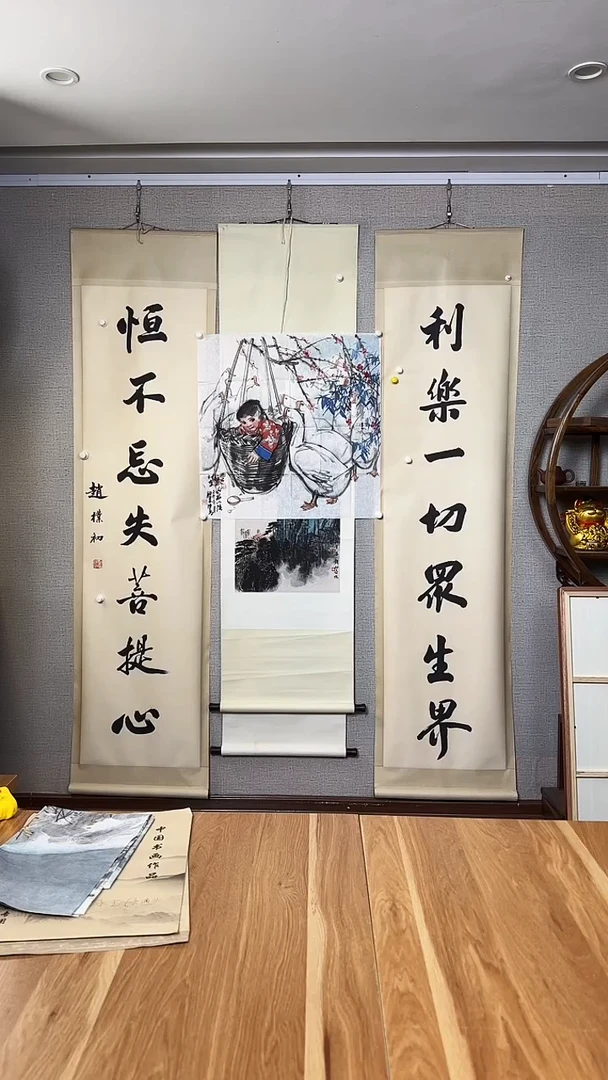 利樂一切眾生界
恒不忘失菩提心
趙樸初
中国书画作品